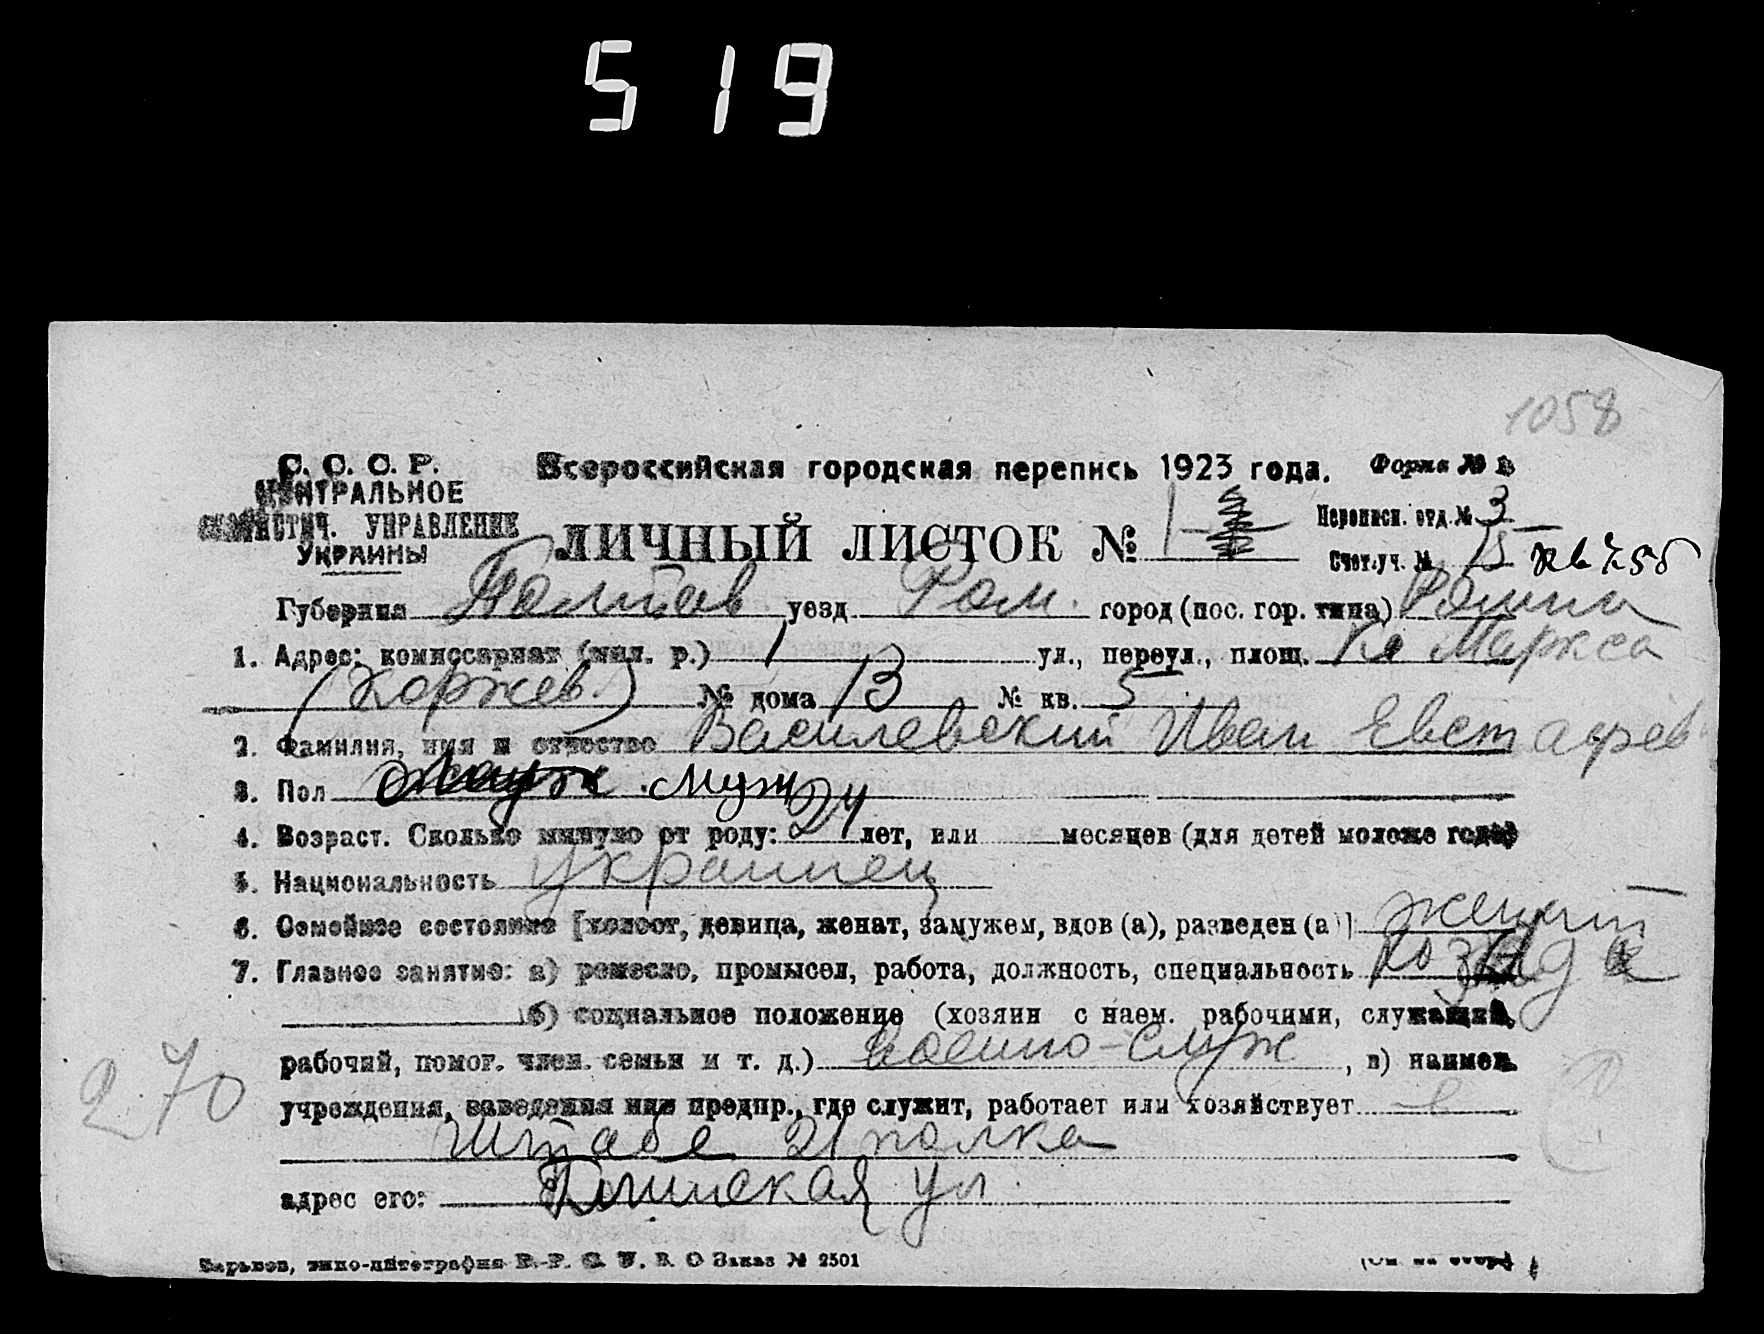 519
1058
С. С. С. Р.
ЦЕНТРАЛЬНОЕ
СТАТИСТИЧ. УПРАВЛЕНИЕ
УКРАИНЫ
Всероссийская городская перепись 1923 года. Форма № В
ЛИЧНЫЙ ЛИСТОК № 1
Переписн. отд. № 3
Счет. уч. № 15 кв 755
Губерния Полтав уезд Ром. город (пос. гор. типа) Ромны
1. Адрес: комиссариат (мил. р.) 1 ул., переул., площ. К. Маркса
(Коржев.) № дома 13 № кв. 5
2. Фамилия, имя и отчество Василевский Иван Евстафьев
3. Пол муж
4. Возраст. Сколько минуло от роду: 24 лет, или месяцев (для детей моложе года)
5. Национальность украинец
6. Семейное состояние [холост, девица, женат, замужем, вдов (а), разведен (а)] женат
7. Главное занятие: а) ремесло, промысел, работа, должность, специальность
б) социальное положение (хозяин с наем. рабочими, служащий,
рабочий, помог. член. семьи и т. д.) военно-служ, в) наимен.
учреждения, заведения или предпр., где служит, работает или хозяйствует в
Штабе 21 полка
адрес его: ул.
270
Харьков, типо-литография Заказ № 2501